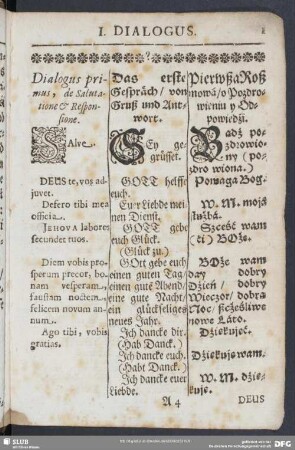 I. DIALOGUS.
Dialogus pri-
mus, de Saluta-
tione & Respon-
sione.
SAlve.
DEUS te, vos ad-
juvet.
Defero tibi mea
officia.
JEHOVA labores
secundet tuos.
Diem vobis pro-
sperum precor, bo-
nam vesperam,
faustam noctem,
felicem novum an-
num.
Ago tibi, vobis
gratias.
Das erste
Gespräch/ von
Gruß und Ant-
wort.
SEy ge-
grüsset.
GOTT helffe
euch.
Eur Liebde mei-
nen Dienst.
GOTT gebe
euch Glück.
(Glück zu.)
GOtt gebe euch
einen guten Tag/
einen gute Abend/
eine gute Nacht/
ein glückseliges
neues Jahr.
Ich dancke dir.
(Hab Danck.)
Ich dancke euch.
(Habt Danck.)
Ich dancke euer
Liebde.
Pierwßa Roz
mowa/ o Pozdro-
wieniu y Od-
powiedźi.
BAdź po-
zdrowio-
ny (po-
zdrowiona.)
Pomaga Bog.
W. M. moją
służbá.
Szcześć wam
(ći) BOże.
BOże wam
day dobry
Dźień/ dobry
Wieczor/ dobra
Noc/ szcześliwe
nowe Láto.
Dźiekuję.
Dźiekuję wam.
W. M. dźie-
kuje.
A 4
DEUS
SLUB
DFG